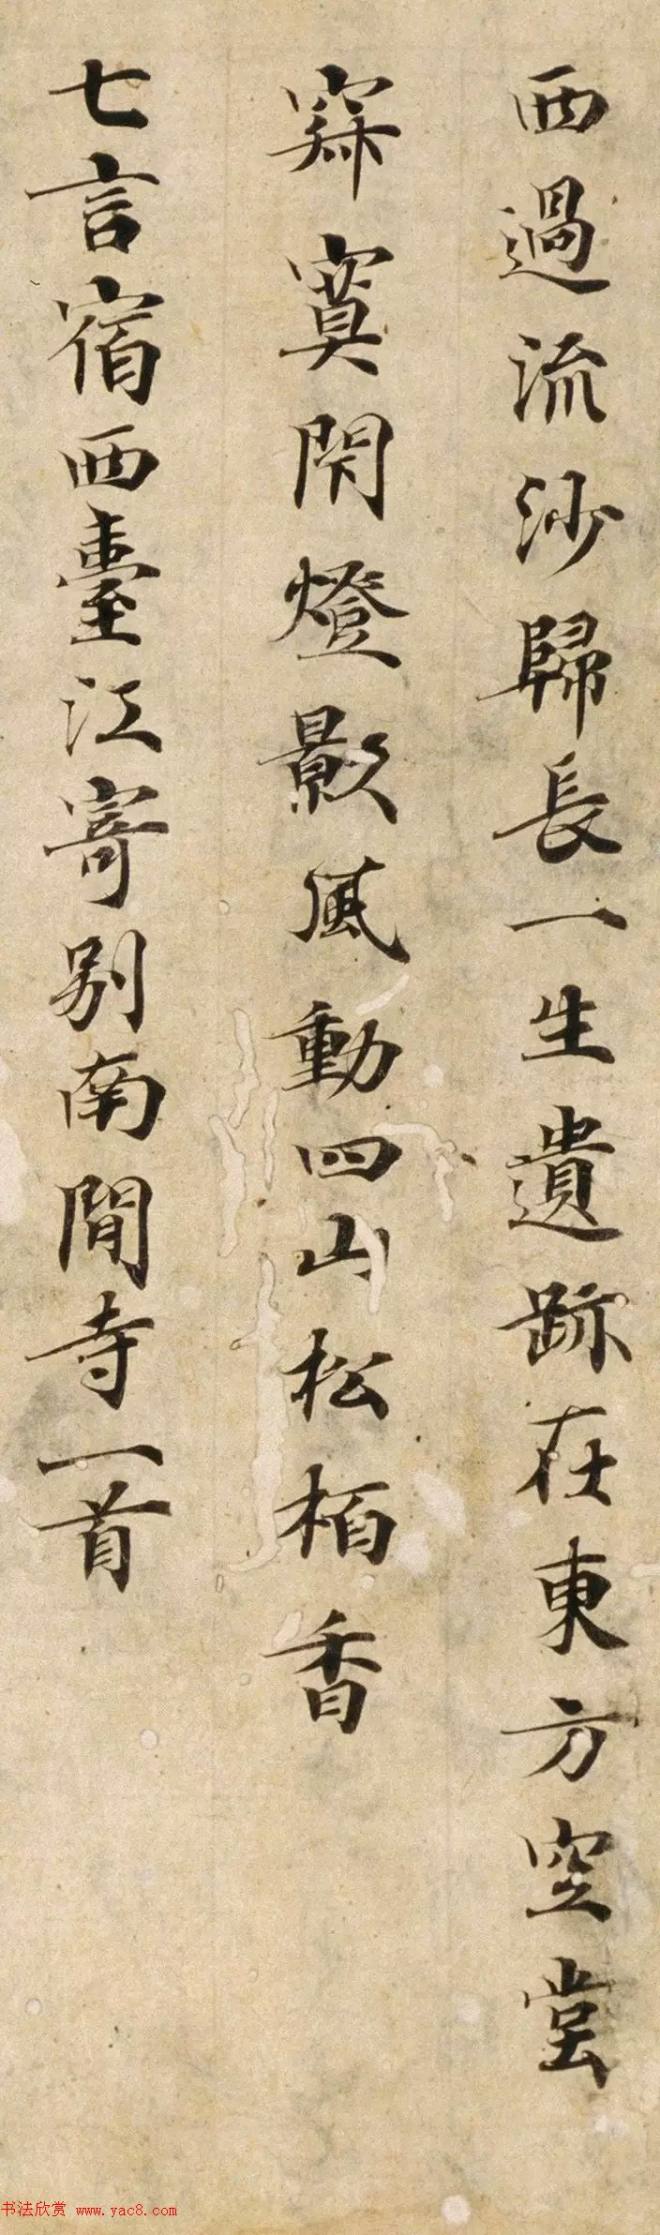 西過流沙歸長一生遺跡在東方空堂
寂寞閇燈影風動四山松栢香
七言宿西臺江寄别南閒寺一首
书法欣赏 www.yac8.com